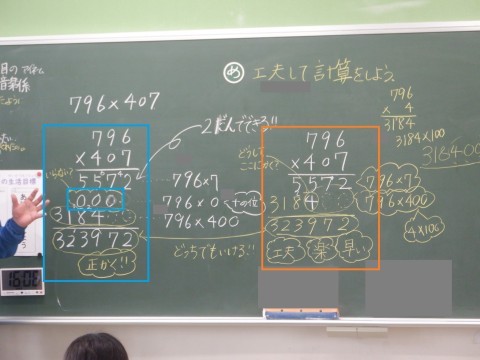 め 工夫して計算をしよう
796×407
796
×407
5572
000
3184
323972
正かく!!
いらない?
2だんでできる!!
796×7
796×0 十の位
796×400
どっちでもいける!!
どうして
ここにかく?
796
×407
5572
3184
323972
工夫 楽 早い
796×7
796×400
4×100
796
× 4
3184
3184×100
318400
16:08